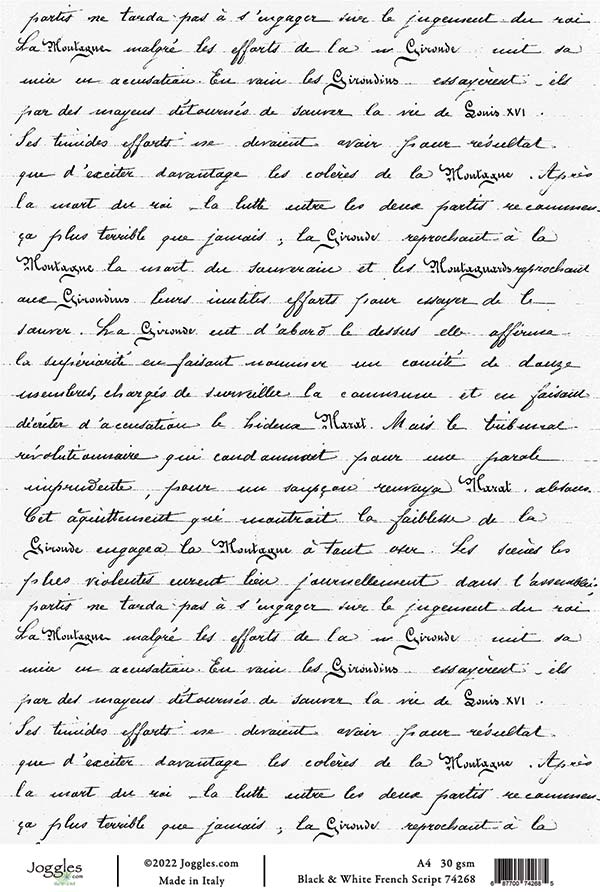 partis ne tarda pas à s'engager sur le jugement du roi
La Montagne malgré les efforts de la Gironde mit sa
mise en accusation. En vain les Girondins essayèrent-ils
par des moyens détournés de sauver la vie de Louis XVI.
Ses timides efforts ne devaient avoir pour résultat.
que d'exciter davantage les colères de la Montagne. Après
la mort du roi la lutte entre les deux partis recommen-
ça plus terrible que jamais; la Gironde reprochant à la
Montagne la mort du souverain et les Montagnards reprochant
aux Girondins leurs inutiles efforts pour essayer de le
sauver. La Gironde eut d'abord le dessus elle affirma
la supériorité en faisant nommer un comité de douze
membres, chargés de surveiller la commune et en faisant
décréter d'accusation le hideux Marat. Mais le tribunal
révolutionnaire qui condamnait pour une parole
imprudente, pour un soupçon renvoya Marat. absous.
Cet aquittement qui montrait la faiblesse de la
Gironde engagea la Montagne à tout oser. Les scènes les
plus violentes eurent lieu journellement dans l'assemblée,
partis ne tarda pas à s'engager sur le jugement du roi
La Montagne malgré les efforts de la Gironde mit sa
mise en accusation. En vain les Girondins essayèrent-ils
par des moyens détournés de sauver la vie de Louis XVI.
Ses timides efforts ne devaient avoir pour résultat.
que d'exciter davantage les colères de la Montagne. Après
la mort du roi la lutte entre les deux partis recommen-
ça plus terrible que jamais; la Gironde reprochant à la
Joggles.com
©2022 Joggles.com
Made in Italy
A4 30 gsm
Black & White French Script 74268
6 87700 74268 5